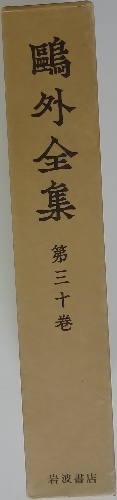 鷗外全集
第三十巻
岩波書店